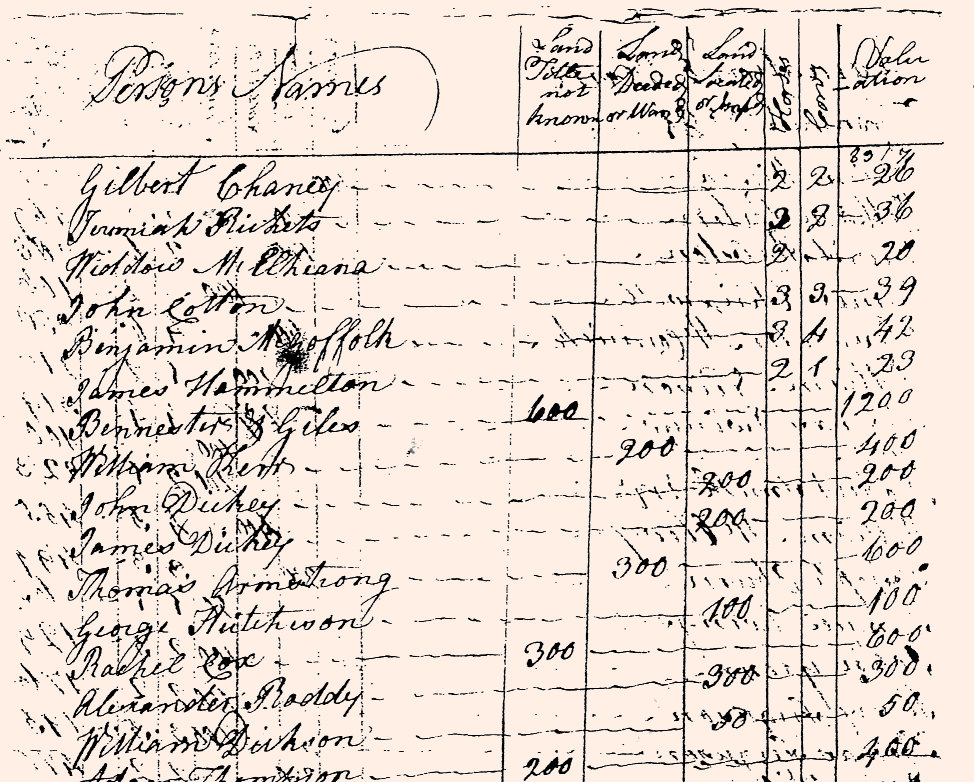 Persons Names Land Title not known Land Deeded or War Land located or Imp Horses Cows Valuation
8317
Gilbert Chaney 2 2 26
Jeremiah Rickets 3 2 36
Widdow McElhiana 2 20
John Cotton 3 3 39
Benjamin 3 4 42
James Hammelton 2 1 23
Bennester & Giles 600 1200
William Kerr 200 400
John Dickey 200 200
James Dickey 200 200
Thomas Armstrong 300 600
George Hutchison 100 100
Rachel Cox 300 600
Alexander Roddy 300 300
William Dickson 50 50
Adam Thompson 200 400